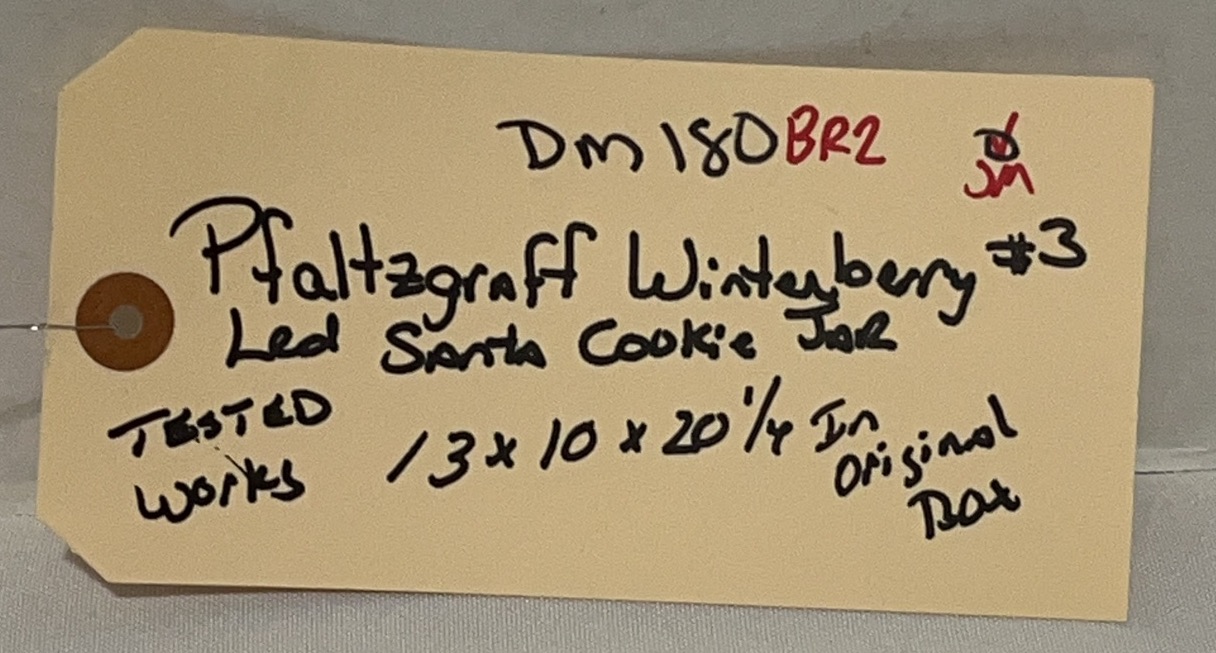 Dm 180 BR2
JM
Pfaltzgraff Winterberry #3
Led Santa Cookie JAR
TESTED
works
13 x 10 x 20 1/4 In
Original
Box